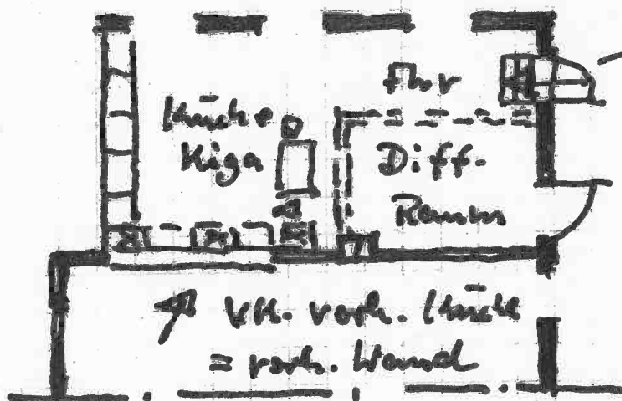 Flur
Küche
Kiga
Diff.
Raum
VK. vorh. Küche
= vorh. Wand